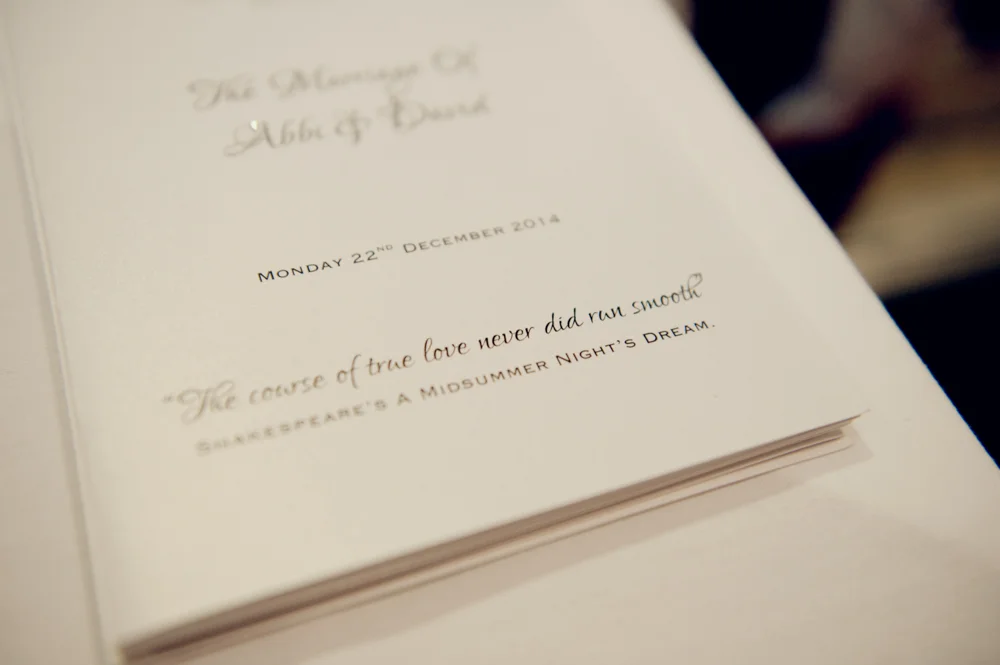 The Marriage Of
Abbi & David
MONDAY 22ND DECEMBER 2014
“The course of true love never did run smooth”
SHAKESPEARE'S A MIDSUMMER NIGHT'S DREAM.